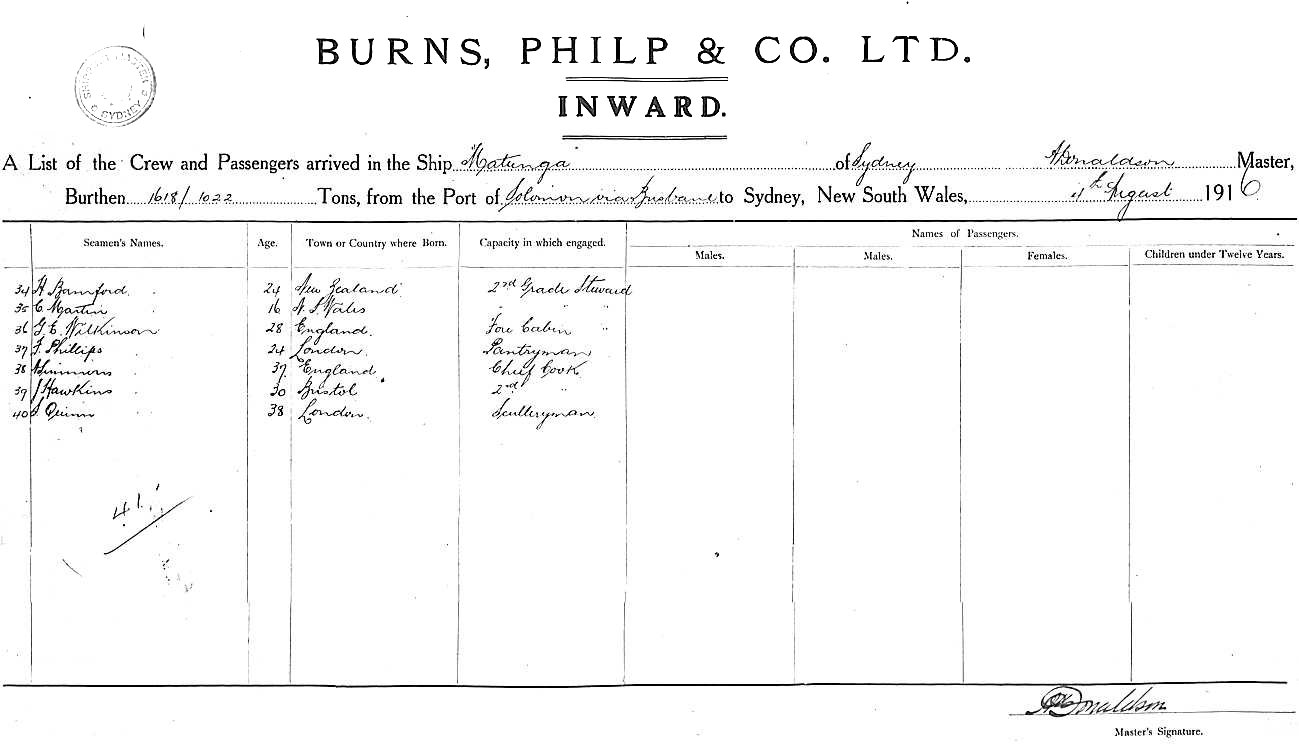 BURNS, PHILP & CO. LTD.
INWARD.
SYDNEY
A List of the Crew and Passengers arrived in the Ship Matunga of Sydney A Donaldson Master,
Burthen 1618/1022 Tons, from the Port of Solomon via Brisbane to Sydney, New South Wales, August 1916
Names of Passengers.
Seamen's Names. Age. Town or Country where Born. Capacity in which engaged.
Males. Males. Females. Children under Twelve Years.
34 H Bamford 24 New Zealand 2nd Grade Steward
35 C. Martin 16 N. S. Wales " "
36 G. E. Wilkinson 28 England. Fore Cabin "
37 F. Phillips 24 London. Pantryman
38 37 England. Chief Cook
39 J Hawkins 30 Bristol 2nd "
40 Quinn 38 London. Sculleryman
41
Donaldson
Master's Signature.